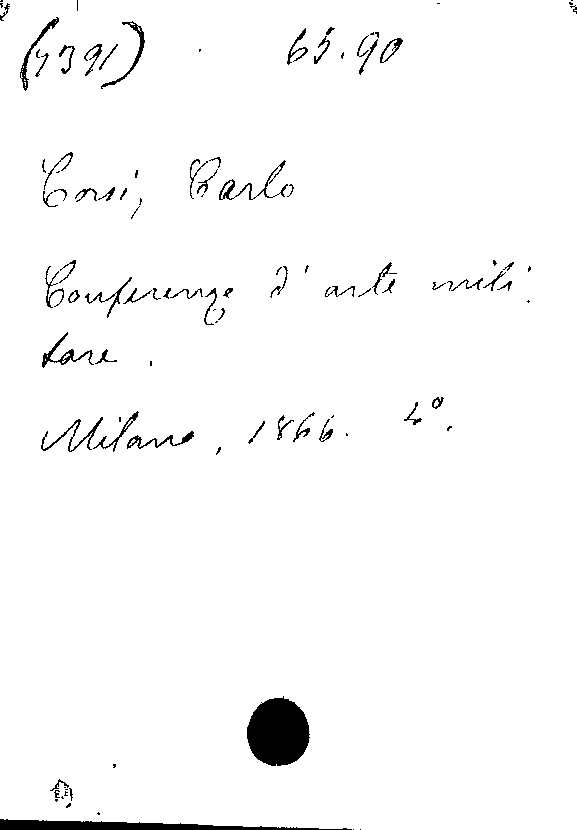 (7391) 65.90
Corsi, Carlo
Conferenze d'arte mili
tare.
Milano, 1866. 4°.